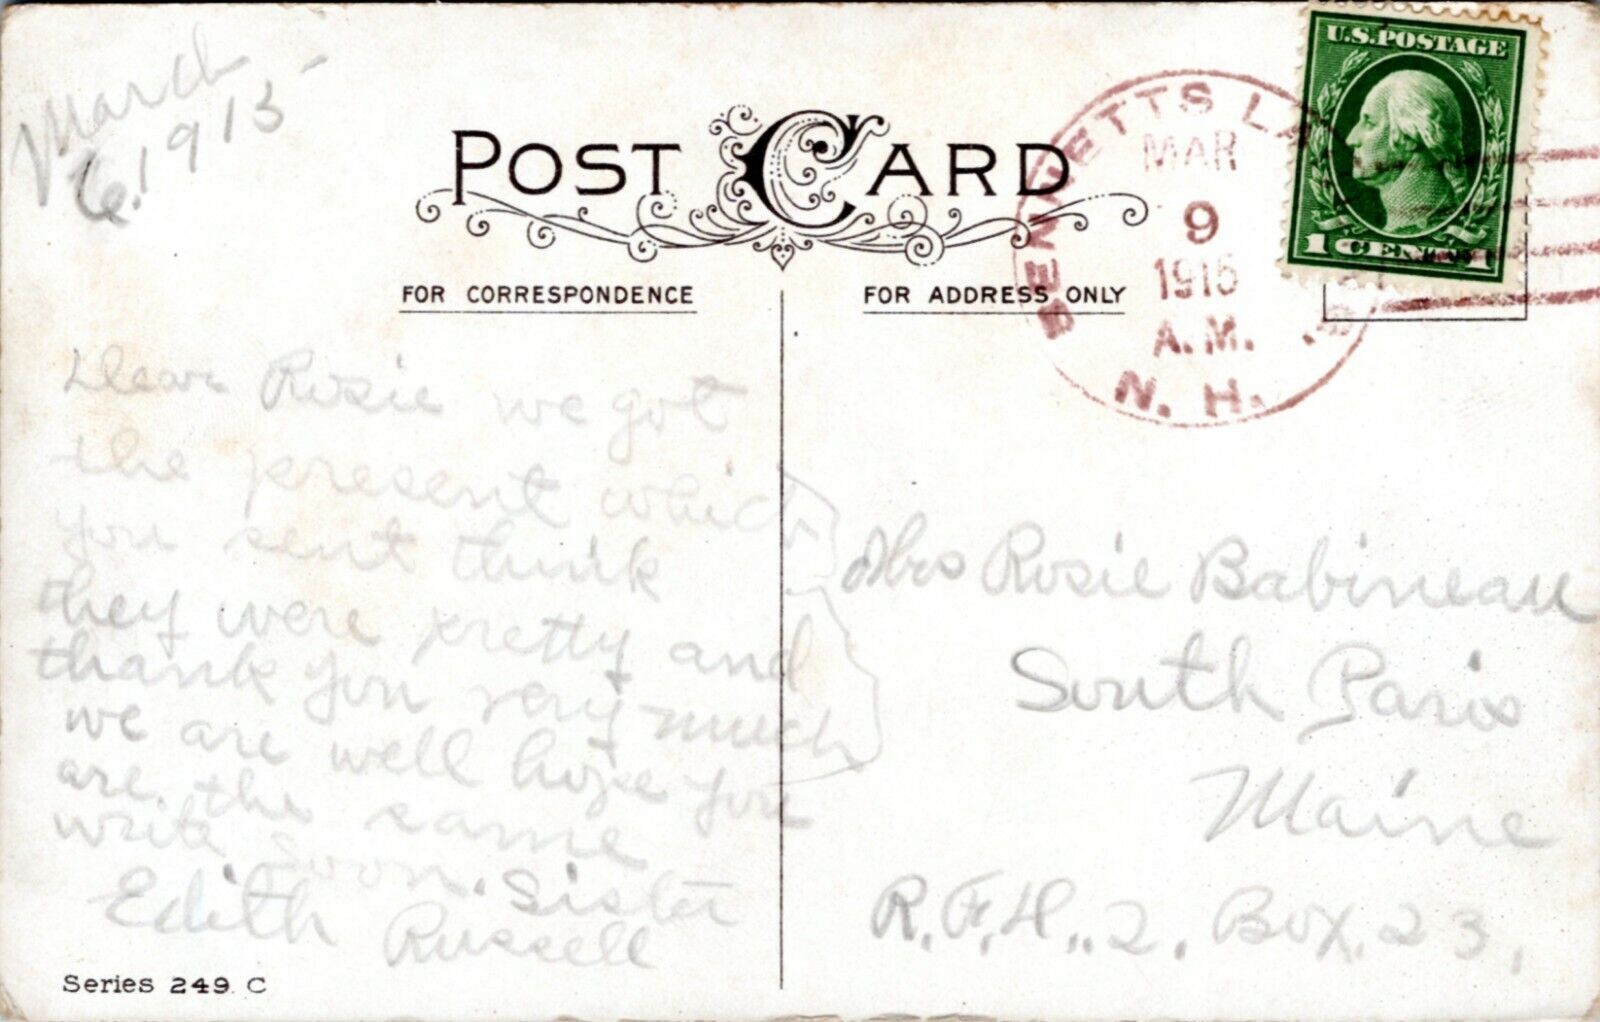 March
6. 1913
POST CARD
FOR CORRESPONDENCE
FOR ADDRESS ONLY
U.S. POSTAGE
1 CENT 1
BENNETTS
MAR
9
1915
A.M.
N. H.
Dear Rosie we got
the present which
you sent think
they were pretty and
thank you very much
we are well hope you
are the same
write soon. Sister
Edith Russell
Mrs Rosie Babineau
South Paris
Maine
R. F. H.. 2. Box. 23.
Series 249. C